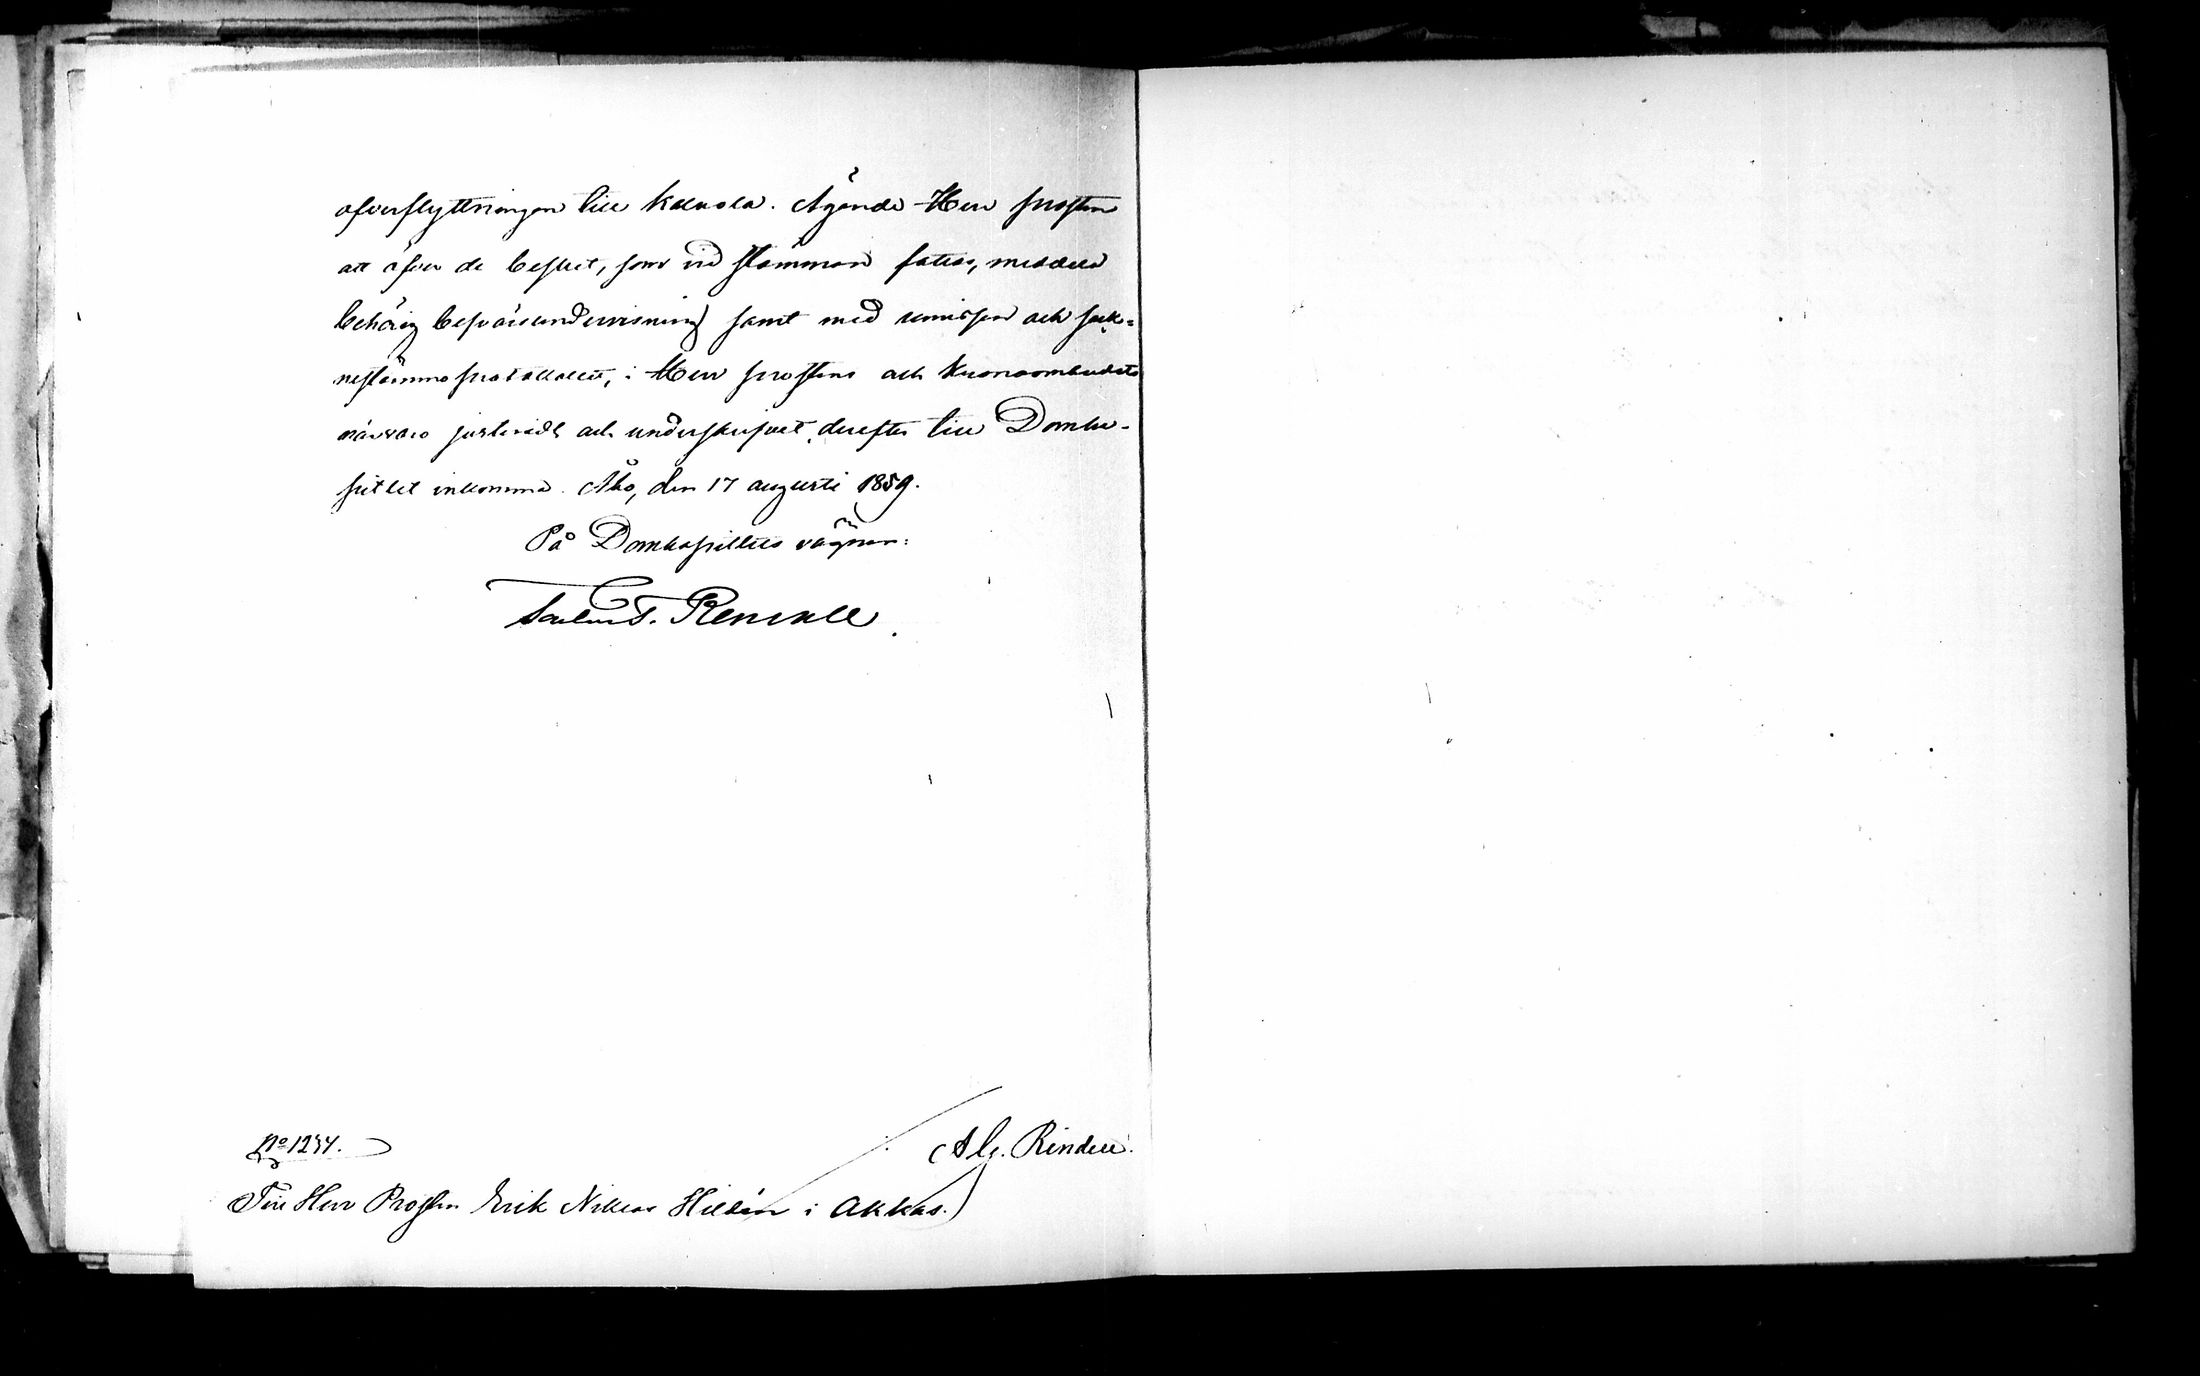 öfverflyttningen till Kalvola. Ägande Herr Prosten
att öfver de beslut, som vid stämman fattas, meddela
behörig besvärsundervisning samt med remissen och sock-
nestämmoprotokollet, i Herr Prostens och Kronoombudets
närvaro justeradt och underskrifvet, derefter till Domka-
pitlet inkomma. Åbo, den 17 augusti 1859.
På Domkapitlets vägnar:
T. T. Renvall
No 1234.
Alg. Rindell.
Till Herr Prosten Erik Niklas Hildén i Akkas.